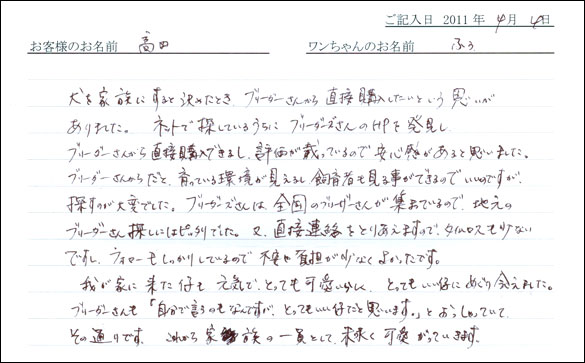 ご記入日 2011年 4月 4日
お客様のお名前 高田 ワンちゃんのお名前 ふぅ
犬を家族にすると決めたとき、ブリーダーさんから直接購入したいという思いが
ありました。 ネットで探しているうちに ブリーダーズさんのHPを発見し、
ブリーダーさんから直接購入できるし、評価が載っているので安心感があると思いました。
ブリーダーさんからだと、育っている環境が見えるし飼育者も見る事ができるのでいいのですが、
探すのが大変でした。ブリーダーズさんは、全国のブリーダーさんが集まっているので、地元の
ブリーダーさん探しにはピッタリでした。又、直接連絡をとりあえますので、タイムロスも少ない
ですし、フォローもしっかりしているので不安や負担が少なくよかったです。
我が家に来た仔も 元気で、とっても可愛いかんじ、とってもいい仔にめぐり会えました。
ブリーダーさんも「自分で言うのもなんですが、とってもいい仔だと思います。」とおっしゃっていて、
その通りです。 これから家族の一員として、末永く可愛がっていきます。